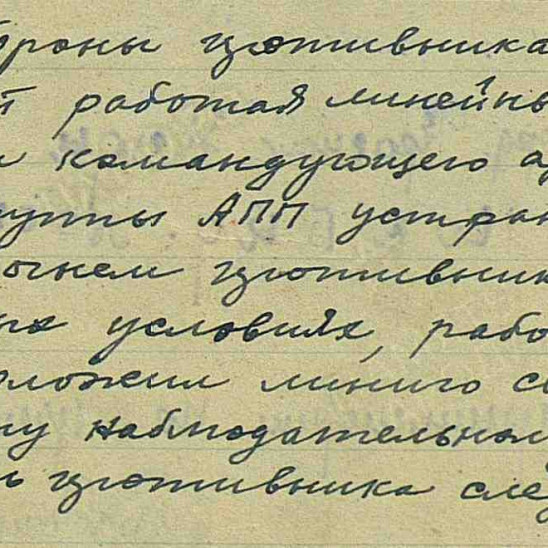 броны противника
т работая линейны
и командующего ар
группы АПП устран
огнем противник
ых условиях, рабо
оложил линию св
му наблюдательном
ь противника след